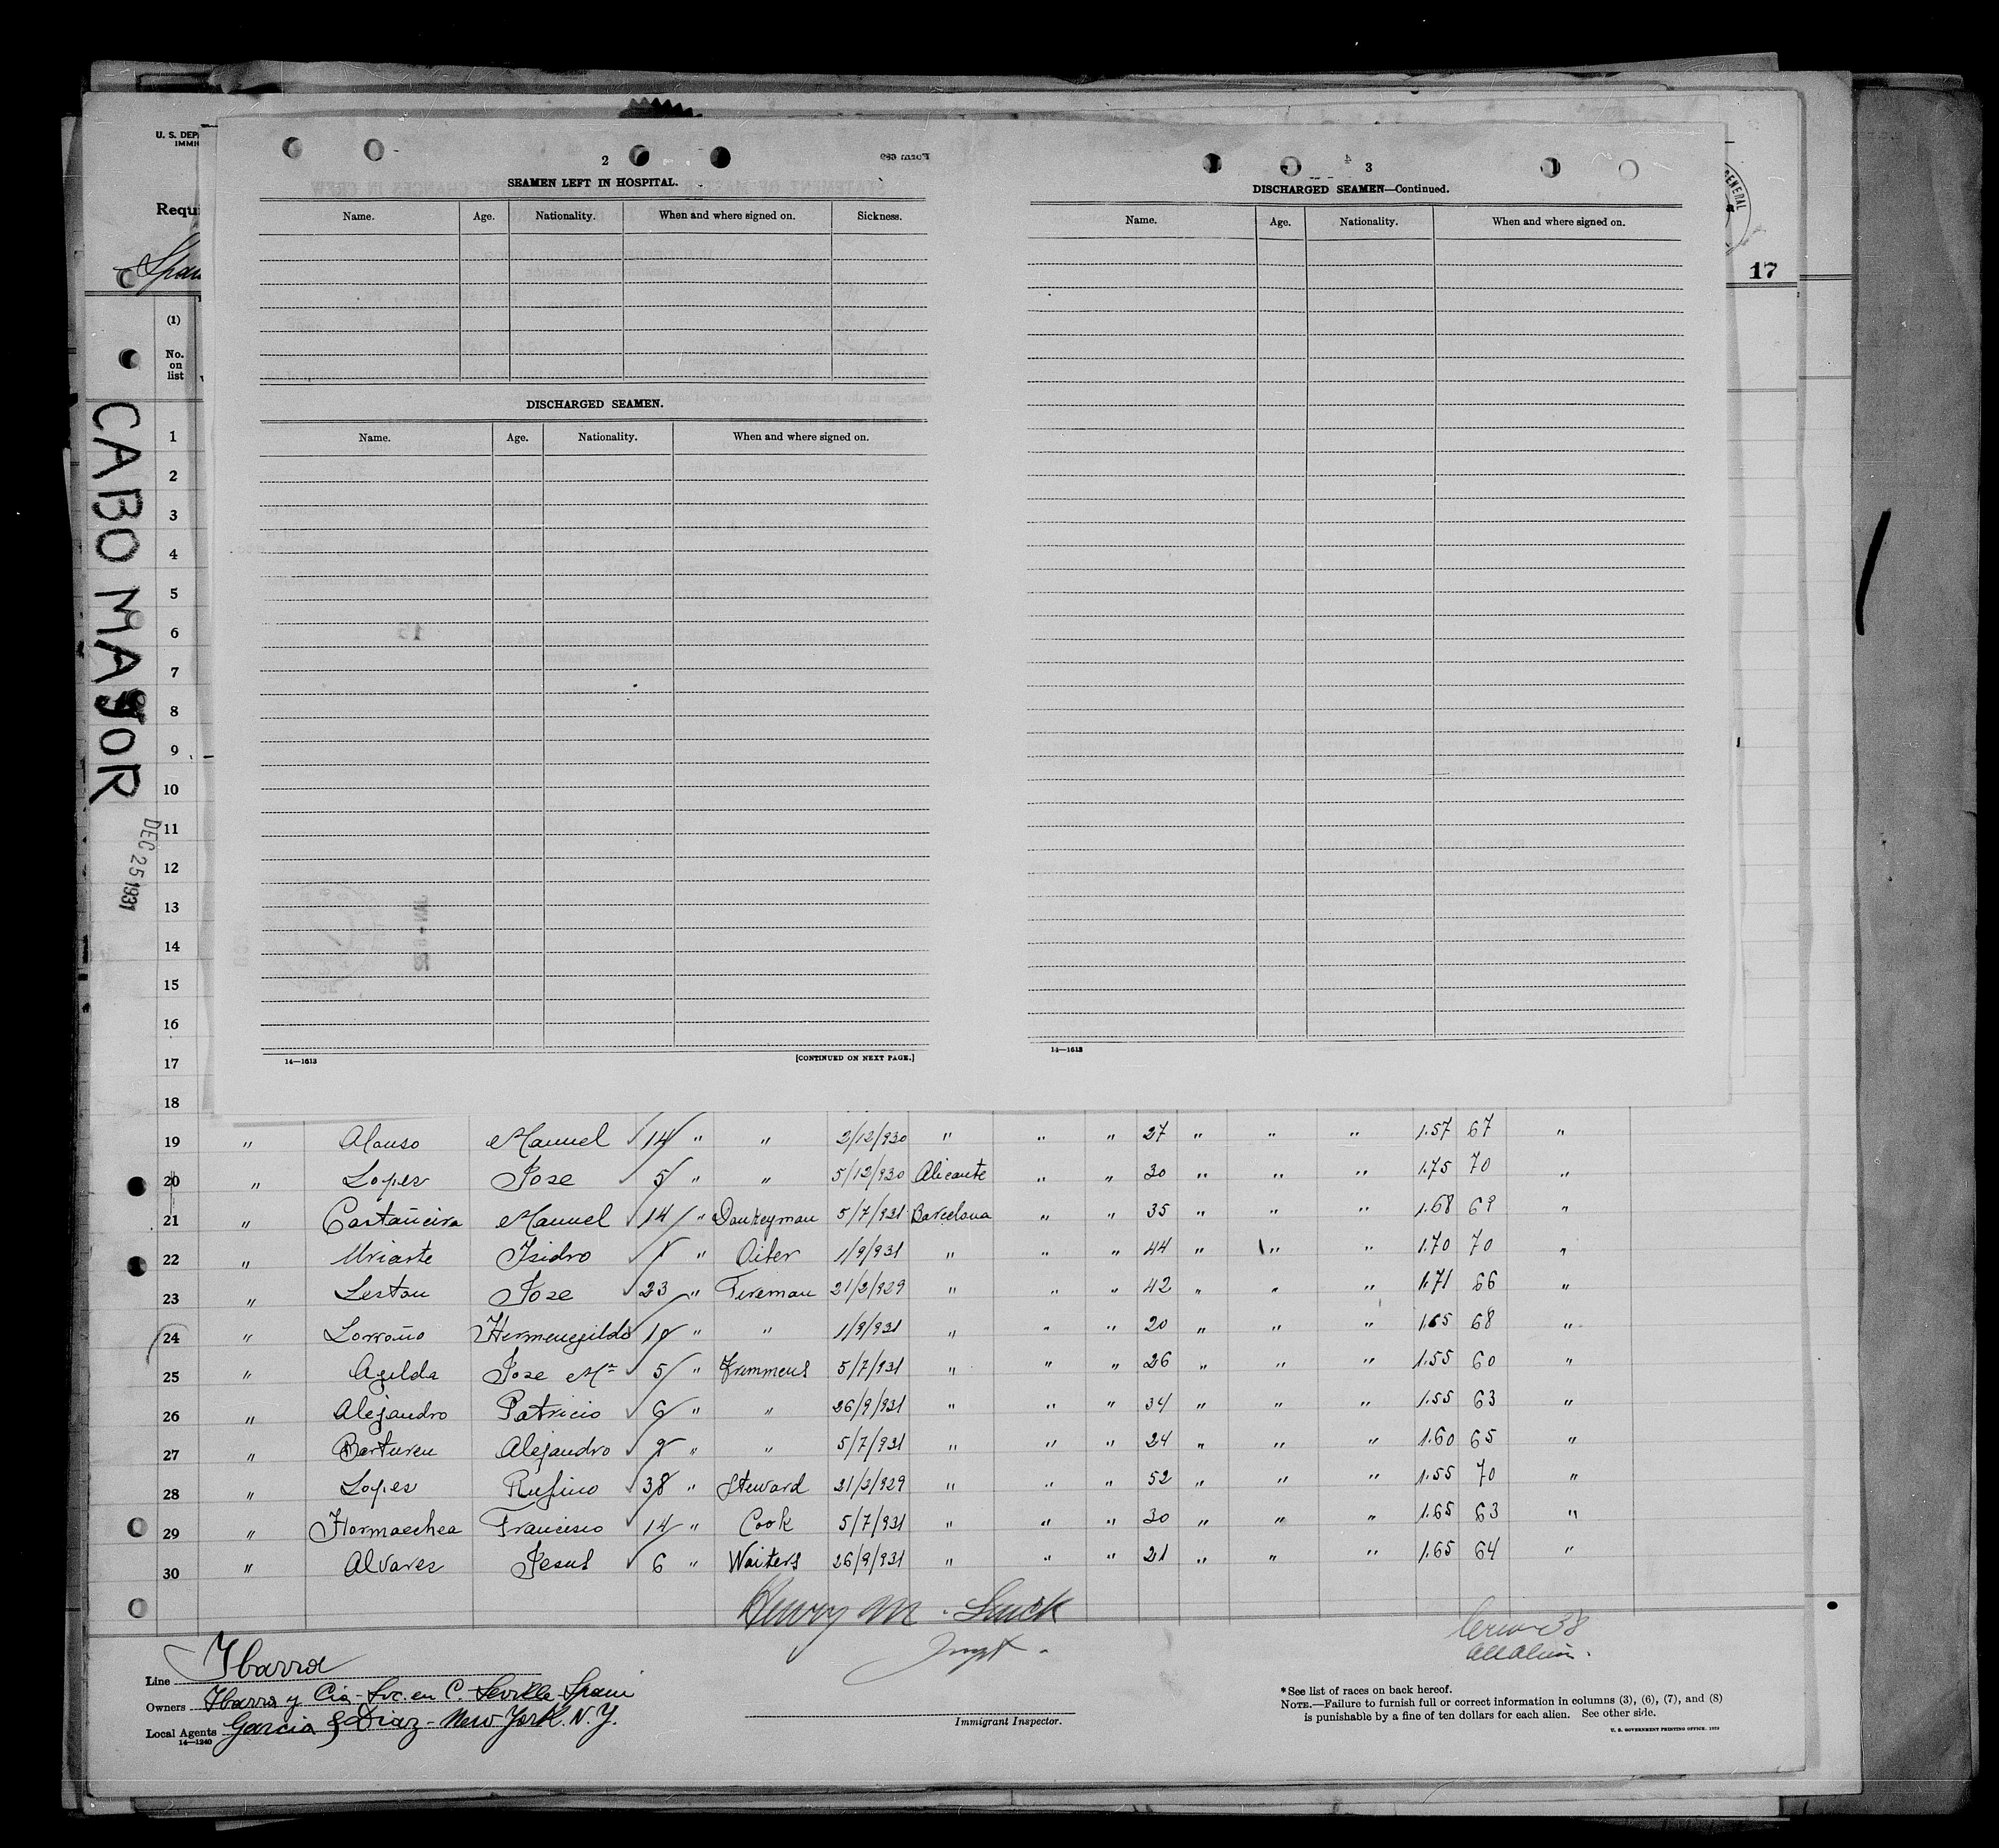 U. S. DEP
IMMI
Requi
Span
(1)
No.
on
list
CABO MAJOR
DEC 25 1931
17
GENERAL
2
Form 689
SEAMEN LEFT IN HOSPITAL.
Name. Age. Nationality. When and where signed on. Sickness.
DISCHARGED SEAMEN.
Name. Age. Nationality. When and where signed on.
15
14—1613 [CONTINUED ON NEXT PAGE.]
4
3
DISCHARGED SEAMEN—Continued.
Name. Age. Nationality. When and where signed on.
14—1613
1
2
3
4
5
6
7
8
9
10
11
12
13
14
15
16
17
18
19 " Alonso Manuel 14 " " 2/12/930 " " " 27 " " " 1.57 67 "
20 " Lopez Jose 5 " " 5/12/930 Alicante " " 30 " " " 1.75 70 "
21 " Castañeira Manuel 14 " Donkeyman 5/7/931 Barcelona " " 35 " " " 1.68 69 "
22 " Uriarte Isidro " Oiler 1/9/931 " " " 44 " " " 1.70 70 "
23 " Lestau Jose 23 " Fireman 21/2/929 " " " 42 " " " 1.71 66 "
24 " Lorroño Hermenegildo " " 1/9/931 " " " 20 " " " 1.65 68 "
25 " Agilda Jose Mª 5 " Trimmers 5/7/931 " " " 26 " " " 1.55 60 "
26 " Alejandro Patricio 6 " " 26/9/931 " " " 34 " " " 1.55 63 "
27 " Barturen Alejandro 2 " " 5/7/931 " " " 24 " " " 1.60 65 "
28 " Lopez Rufino 38 " Steward 21/2/929 " " " 52 " " " 1.55 70 "
29 " Hormaechea Francisco 14 " Cook 5/7/931 " " " 30 " " " 1.65 63 "
30 " Alvarez Jesus 6 " Waiters 26/9/931 " " " 21 " " " 1.65 64 "
Henry M.
Inspt.
Crew 38
all alien.
Line Ibarra
Owners Ibarra y Cia - Soc. en C. Seville - Spain
Local Agents Garcia & Diaz - New York. N. Y.
14—1240
Immigrant Inspector.
*See list of races on back hereof.
NOTE.—Failure to furnish full or correct information in columns (3), (6), (7), and (8)
is punishable by a fine of ten dollars for each alien. See other side.
U. S. GOVERNMENT PRINTING OFFICE. 1929